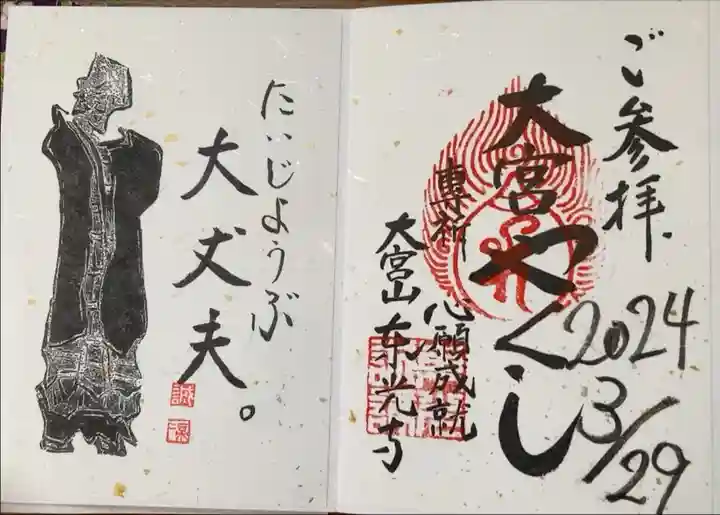 ご参拝
2024
3/29
大宮やくし
專祈 心願成就
大宮山 东光寺
だいじょうぶ
大丈夫。
誠